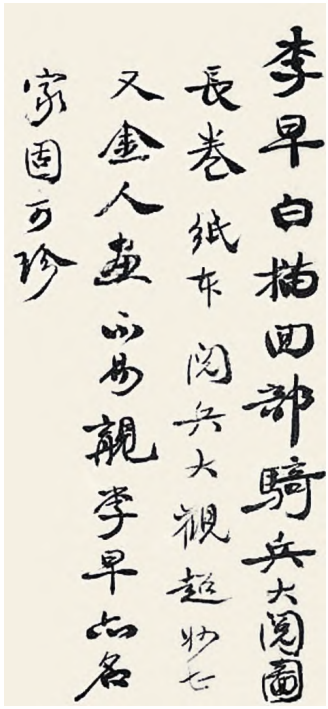 李早白描回部騎兵大閱圖
長卷 紙本 閱兵大觀 超妙
又金人畫不易覯李早亦名
家固可珍